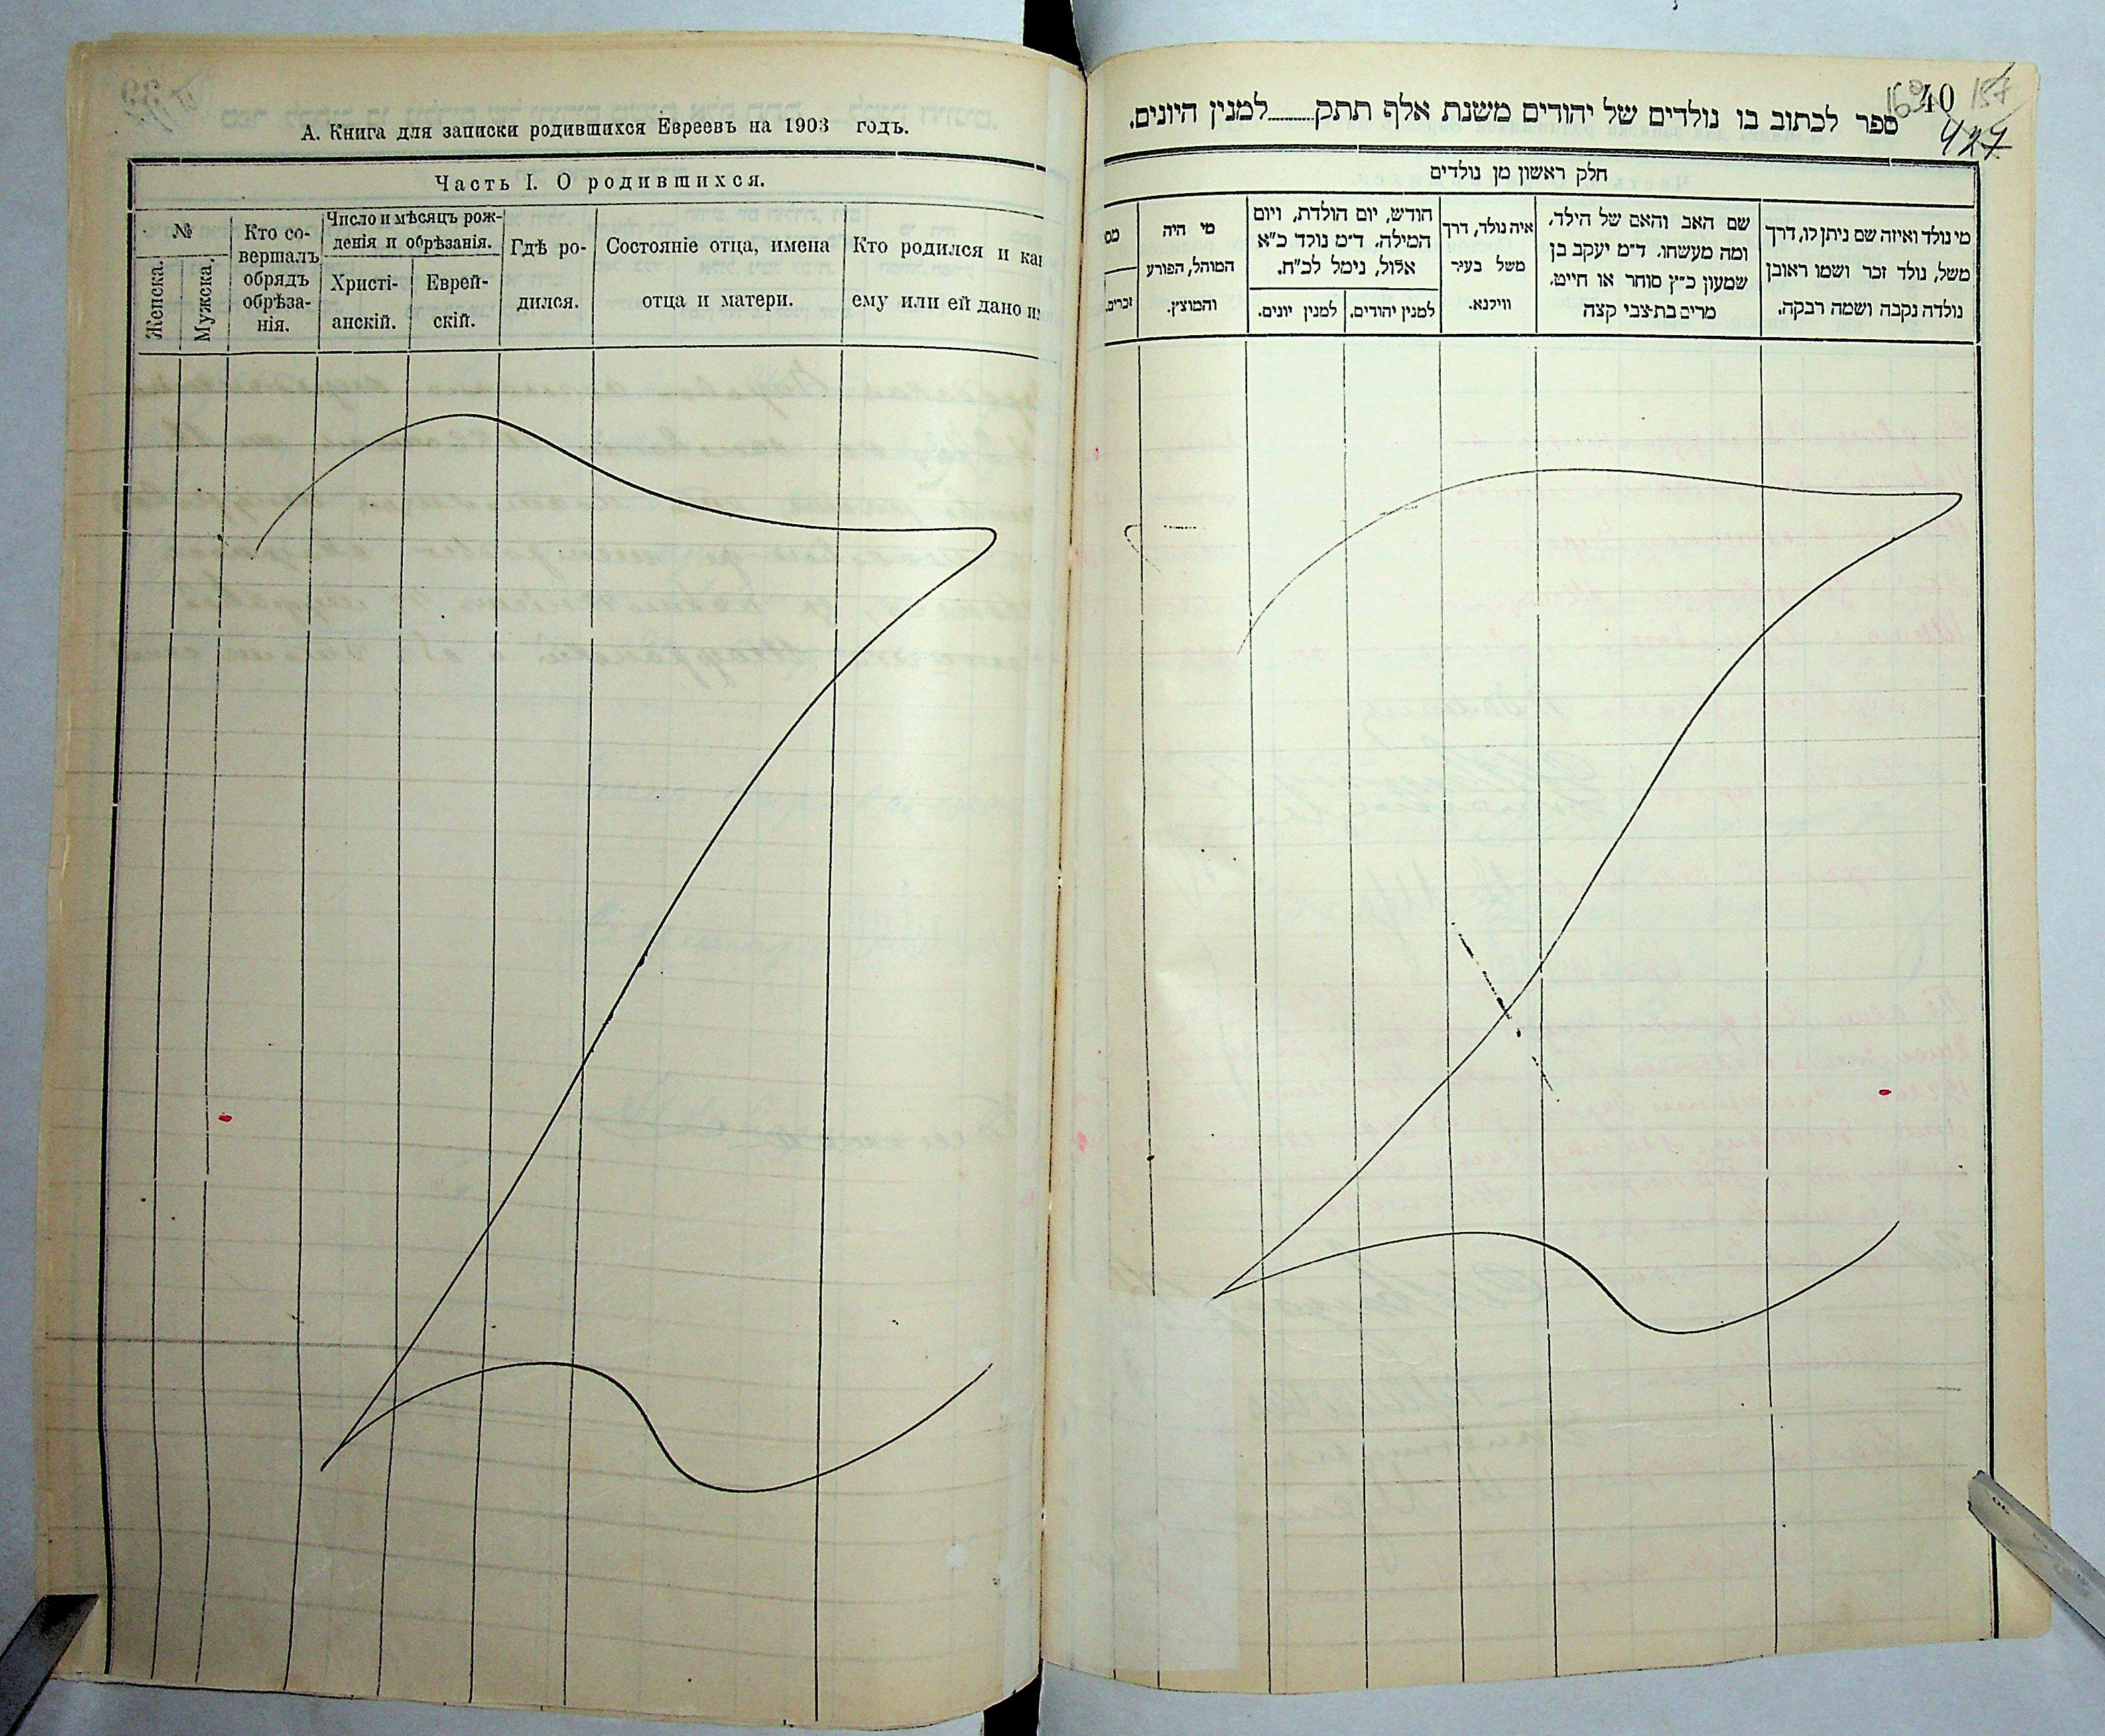 А. Книга для записки родившихся Евреевъ на 1903 годъ.
Часть I. О родившихся.
№
Женска.
Мужска.
Кто со-
вершалъ
обрядъ
обрѣза-
нія.
Число и мѣсяцъ рож-
денія и обрѣзанія.
Христі-
анскій.
Еврей-
скій.
Гдѣ ро-
дился.
Состояніе отца, имена
отца и матери.
Кто родился и ка
ему или ей дано и
40
157
427
ספר לכתוב בו נולדים של יהודים משנת אלף תתק למנין היונים.
חלק ראשון מן נולדים
מי נולד ואיזה שם ניתן לו, דרך
משל, נולד זכר ושמו ראובן
נולדה נקבה ושמה רבקה.
שם האב והאם של הילד,
ומה מעשהו. ד״מ יעקב בן
שמעון כ״ץ סוחר או חייט,
מרים בת־צבי קצה
איה נולד, דרך
משל בעיר
ווילנא.
חודש, יום הולדת, ויום
המילה. ד״מ נולד כ״א
אלול, נימל לכ״ח.
למנין יהודים.
למנין יונים.
מי היה
המוהל, הפורע
והמוצץ.
מס
זכרים.